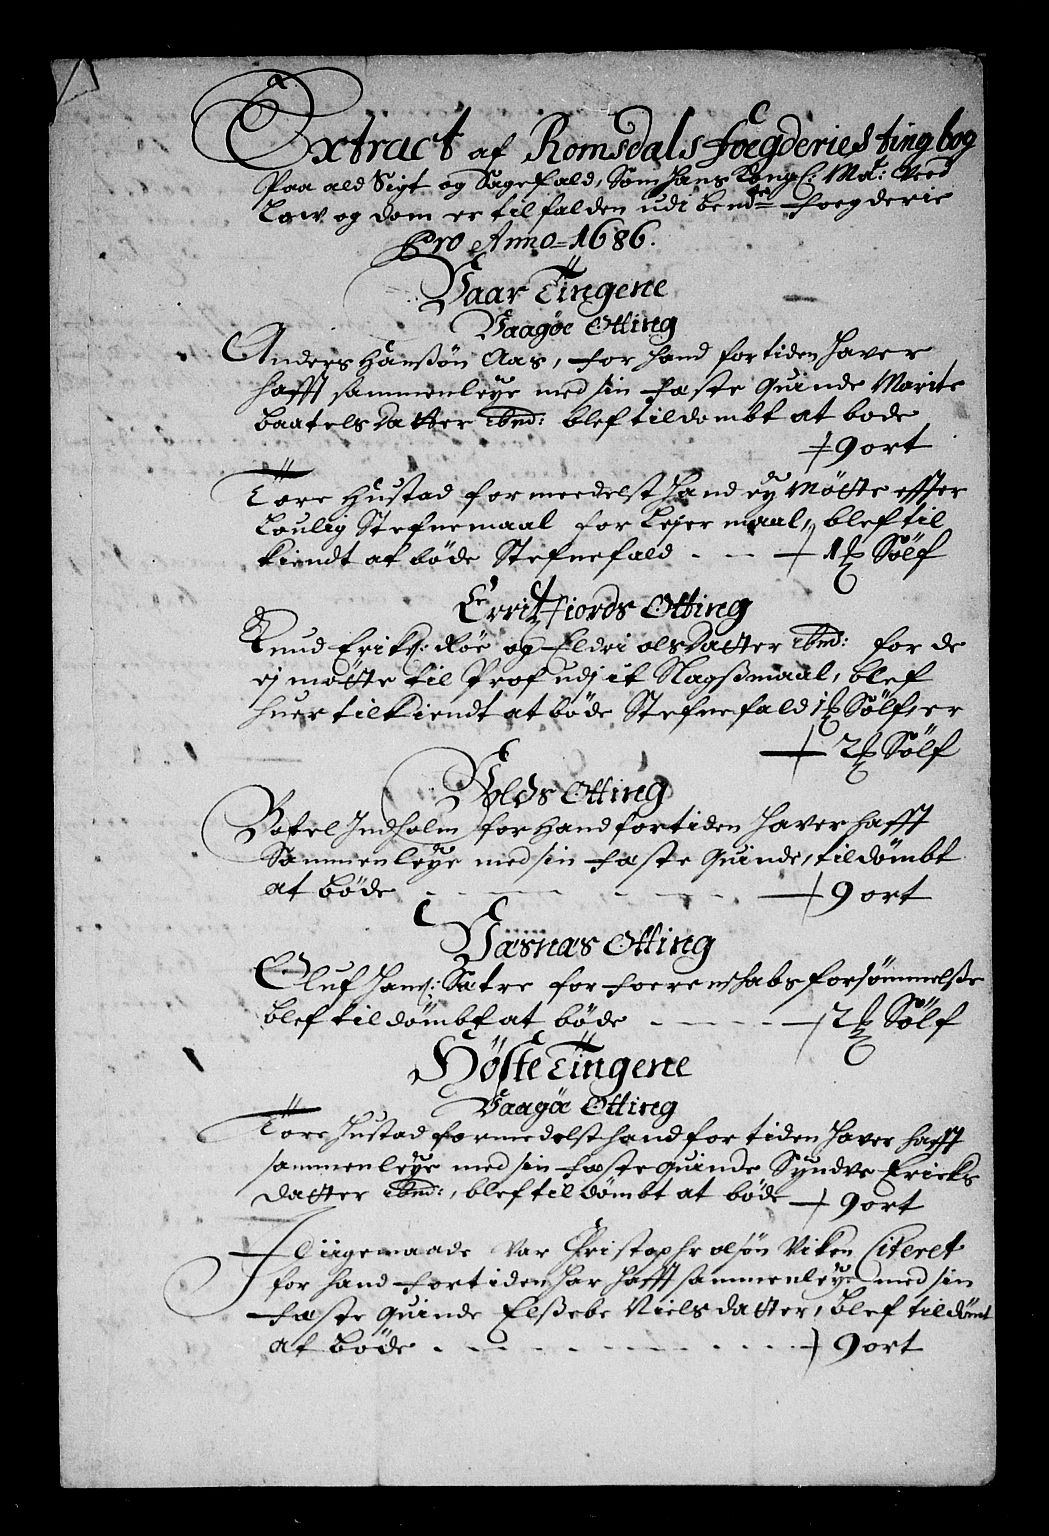 Extract af Romsdals foegderies ting bog
Paa ald Sigt og Sagefald, Som hans Kongl: Mat: Ved
Low og dom er tilfalden udi bemdte foegderie
Pro Anno = 1686.
Vaar Tingene
Vaagöe Otting
Anders Hanßön Aas, for hand for tiden haver
hafft sammenleye med sin fæste quinde Marite
baatels datter ibmd: blef tildombt at bode
9 ort
Tore Hustad formeedelst hand ey Mötte effter
Loulig Stefnemaal for Lejermaal, blef til
kiendt at böde Stefnefald - - - 1 Sölf
Erritzfiords Otting
Knud Erichs: Röe og Eldri olsdatter ibmd: for de
ej mötte til Prof udj it Slagßmaal, blef
huer tilkiendt at böde Stefnefald 1 Sölf, er
2 Sölf
Volds Otting
Botel Indholm for hand for tiden haver hafft
Sammenleye med sin fæste quinde, tildömbt
at böde - - - - - 9 ort
Væsnæs Otting
Oluf Hans: Sætre for foerenschabs forsömmelße
blef tildömbt at böde - - - - 2 Sölf
Höste Tingene
Vaagöe Otting
Tore Hustad formedelst hand for tiden haver hafft
sammenleye med sin fæste quinde Syndve Ericks
datter ibmd:, blef tildömbt at böde 9 ort
I liigemaade var Christophr olsön Viken Citeret
for hand for tiden har hafft sammenleye med sin
fæste quinde Elßebe Nielsdatter, blef tildömt
at böde - - - - - - - - 9 ort